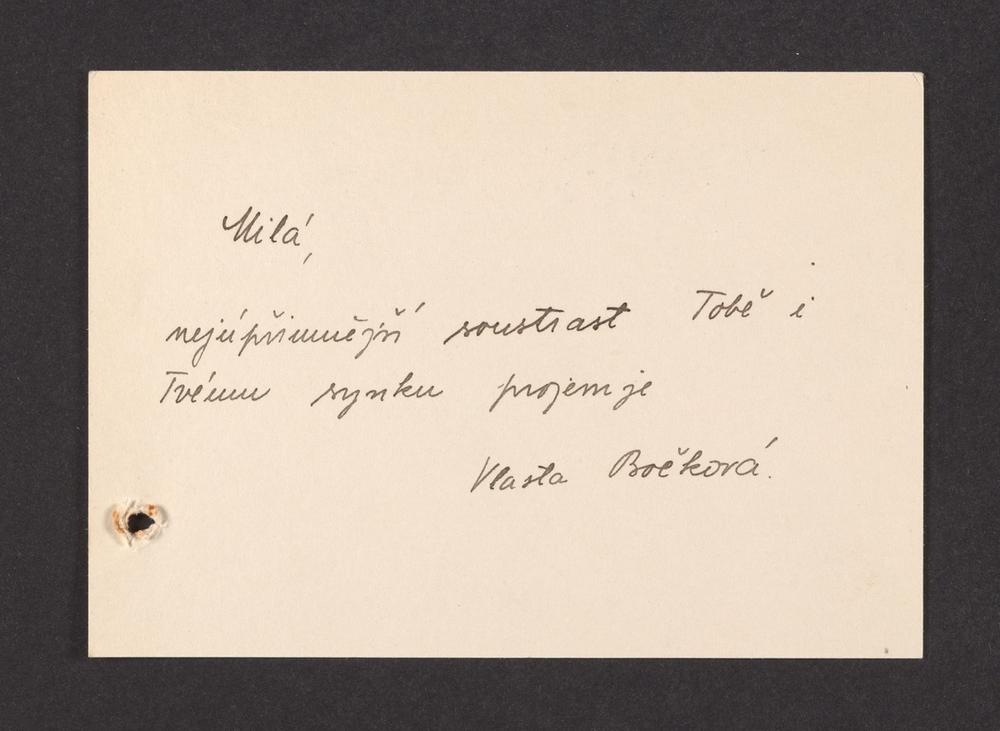 Milá,
nejúpřimnější soustrast Tobě i
Tvému synku projemje
Vlasta Bočková.